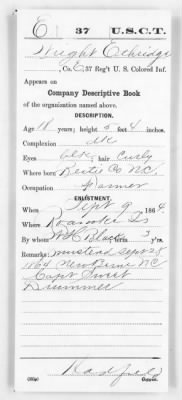 E | 37 | U.S.C.T.
Wright Ethridge
, Co. E, 37 Reg't U. S. Colored Inf.
Appears on
Company Descriptive Book
of the organization named above.
DESCRIPTION.
Age 18 years; height 5 feet 4 inches.
Complexion dk
Eyes blk; hair Curly
Where born Bertie Co N.C.
Occupation Farmer
ENLISTMENT.
When Sept 9, 1864
Where Roanoke Is
By whom Black; term 3 y'rs.
Remarks: mustered Sept 28
1864 New Berne N.C.
Capt
Drummer
Hadfield
Copyist.